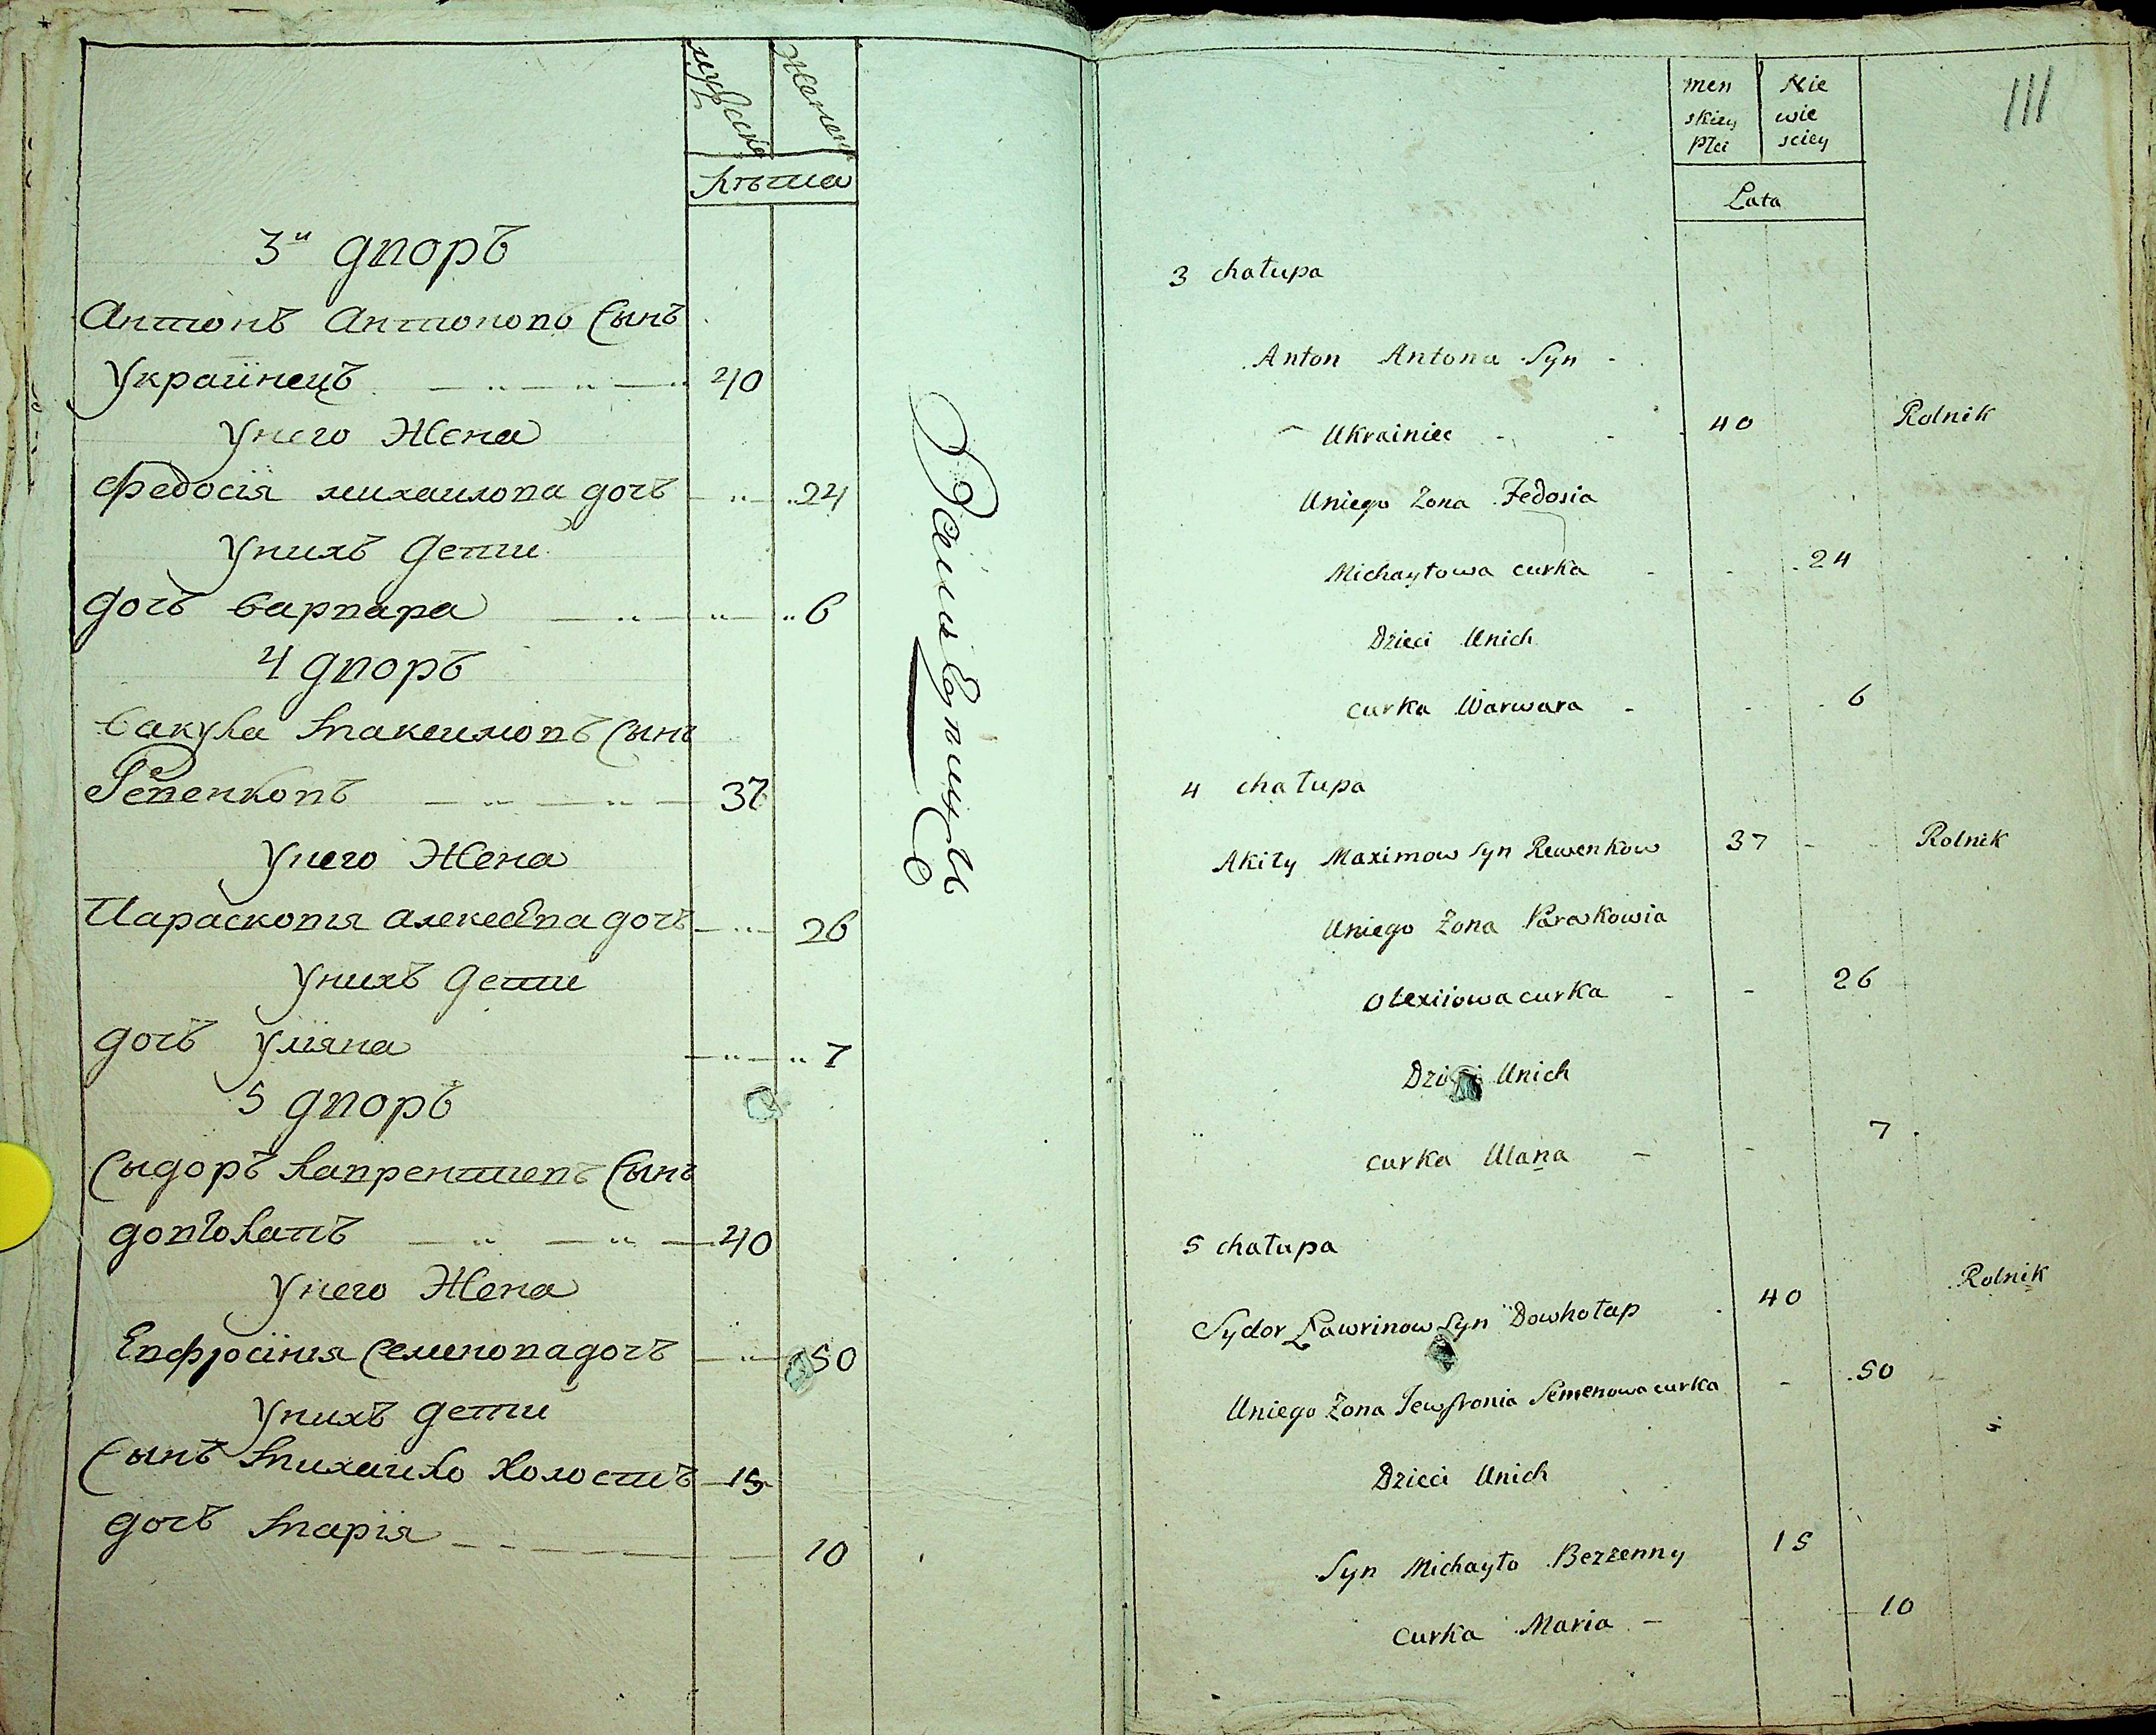 мужеска
женска
лѣта
3й дворъ
Антонъ Антоновъ сынъ
Украинецъ 40
У него жена
Федосія Михаилова дочъ 24
У нихъ дети
дочъ Варвара 6
4 дворъ
Вакула Максимовъ сынъ
Ревенковъ 37
У него жена
Парасковія Алексѣева дочъ 26
У нихъ дети
дочъ Уліяна 7
5 дворъ
Сыдоръ Лаврентіевъ сынъ
Довголапъ 40
У него жена
Евфросінія Семенова дочъ 50
У нихъ дети
сынъ Михаило холостъ 15
дочъ Марія 10
111
men skiey Płci
Nie wie sciey
Lata
3 chałupa
Anton Antona Syn
Ukrainiec 40 Rolnik
Uniego Zona Fedosia
Michayłowa curka 24
Dzieci Unich
curka Warwara 6
4 chałupa
Akiły Maximow Syn Rewenkow 37 Rolnik
Uniego Zona Paraskowia
Olexiiowa curka 26
Dzieci Unich
curka Ulana 7
5 chałupa
Sydor Ławrinow Syn Dowhołap 40 Rolnik
Uniego Zona Jewfronia Semenowa curka 50
Dzieci Unich
Syn Michayło Bezzenny 15
curka Maria 10